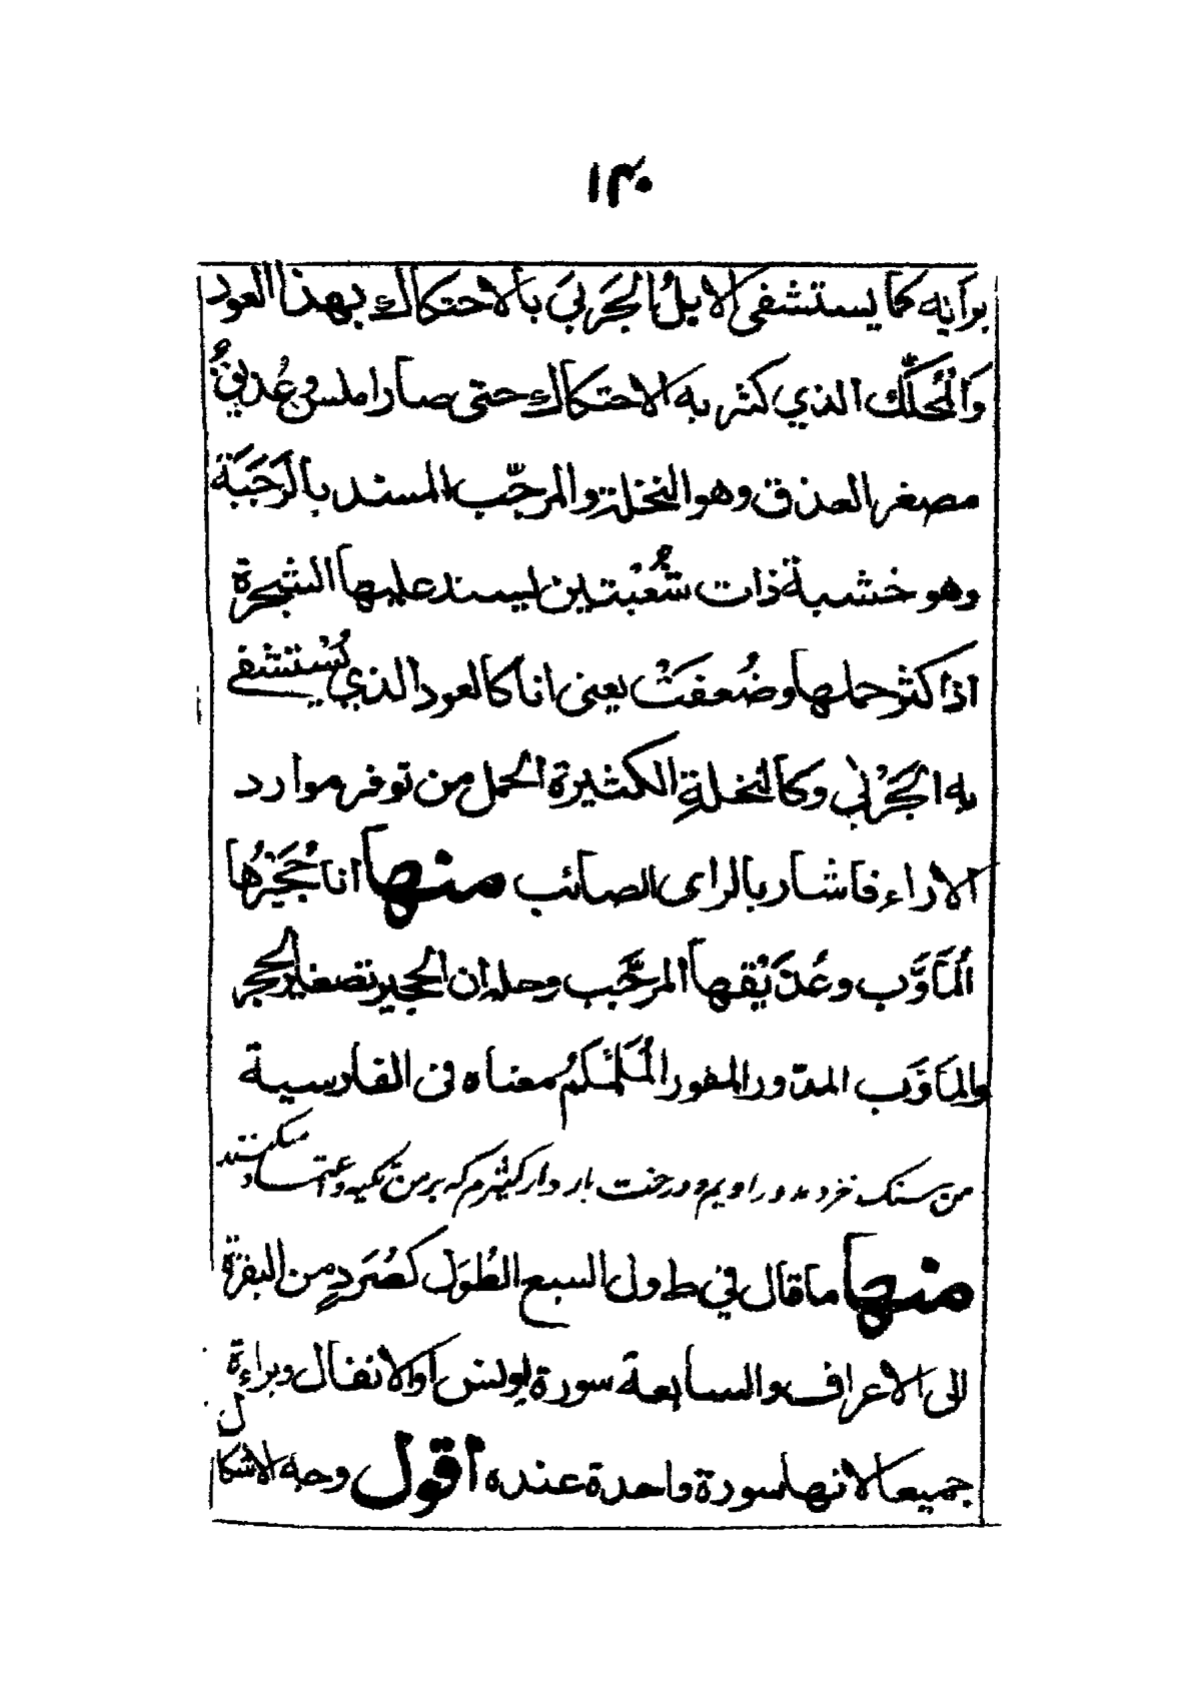 ١٣٠
برأيه كما يستشفى الابلُ الجَربىَ بالاحتكاك بهذا العود
وَالمُحكَّك الذي كثر به الاحتكاك حتى صار املس وعُذيقُ
مصغر العذق وهو النخلة والمرجّب المسند بالرَجَبَة
وهو خشبة ذات شُعْبتين ليسند عليها الشجرة
اذا كثر حملها وضُعفتْ يعنى انا كالعود الذي يُسْتشفى
به الجَرْبىٰ وكالنخلةِ الكثيرة الحمل من توفر موارد
الاراء فاشار بالراى الصائب منها انا حُجَيْرُها
المَأوَّب وعُذَيْقها المرجَّب وحله ان الحجير تصغير الحجر
والمَأوَّب المدّور المفور المُلَمْلَمُ معناه فى الفارسية
من سنك خرد مدور اويم ودرخت بار دار كيثرم كه بر من تكيه واعتماد ميكنند
منها ما قال في طول السبع الطُوَل كصُرَدٍ من البقرة
الى الاعراف والسابعة سورة يونس او الانفال وبراءة
جميعا لانها سورة واحدة عنده اقول وجه الاشكال